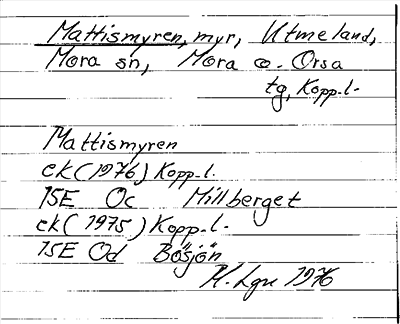 Mattismyren, myr, Utmeland,
Mora sn, Mora o. Orsa
tg, Kopp.l.
Mattismyren
ek (1976) Kopp.l.
15E Oc Millberget
ek (1975) Kopp.l.
15E Od Bösjön
H. Lgn 1976